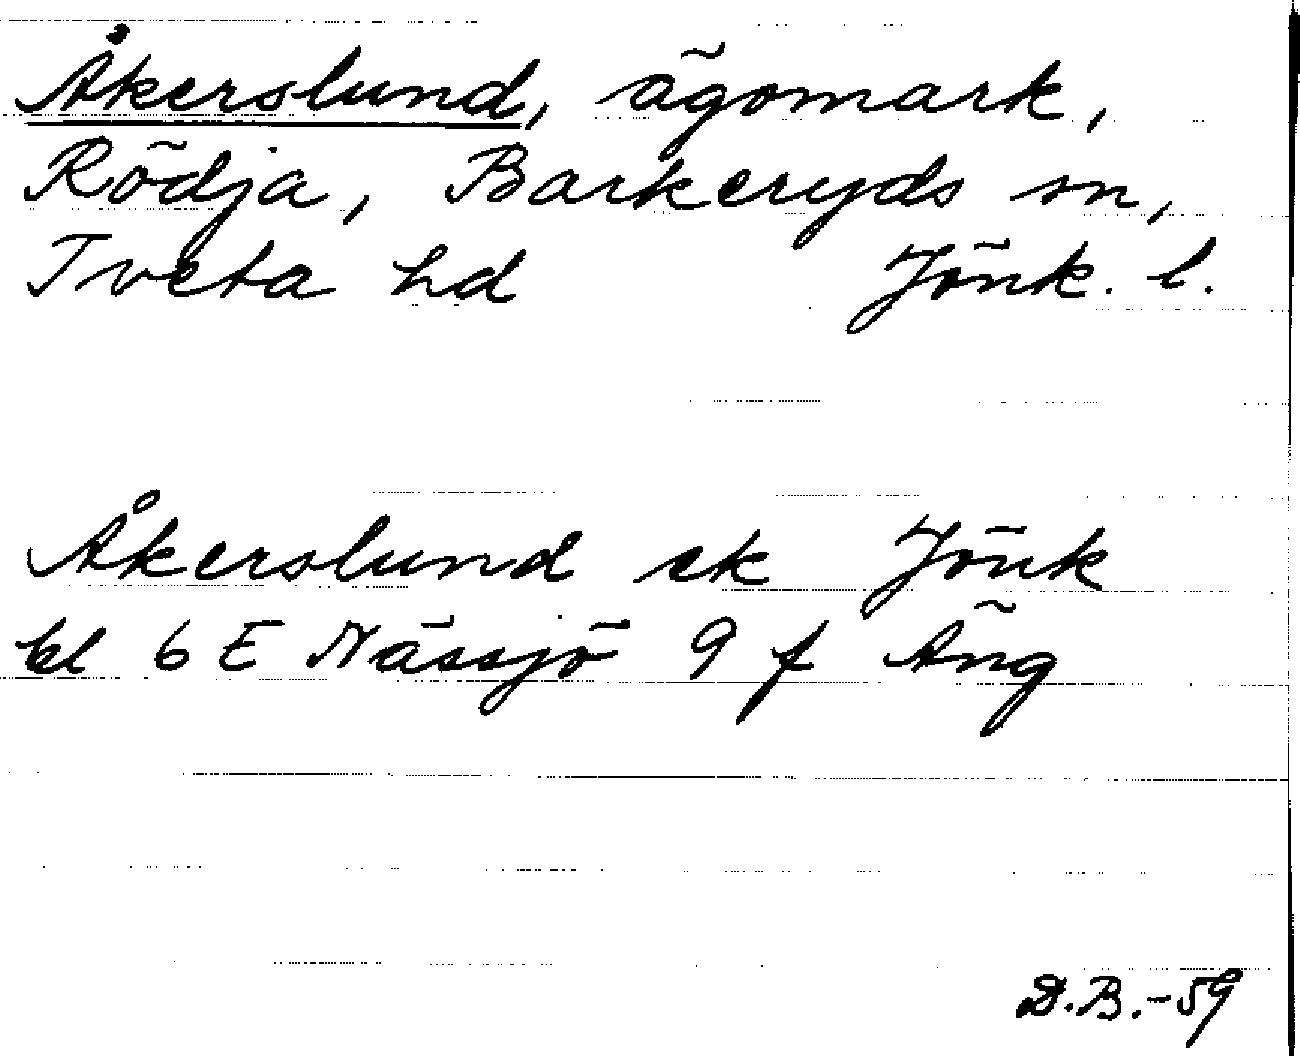 Åkerslund, ägomark,
Rödja, Barkeryds sn,
Tveta hd Jönk. l.
Åkerslund ek Jönk
bl 6 E Nässjö 9 f Äng
D.B.-59